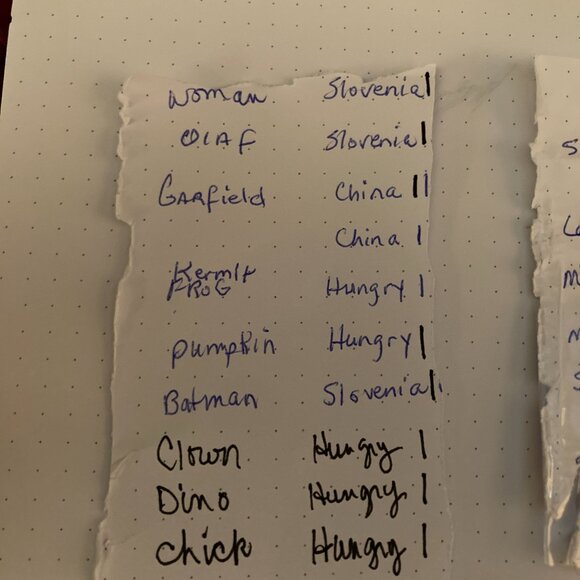 Woman Slovenia |
Olaf Slovenia |
Garfield China ||
China |
Kermit
FROG Hungry |
Pumpkin Hungry |
Batman Slovenia |
Clown Hungry |
Dino Hungry |
Chick Hungry |